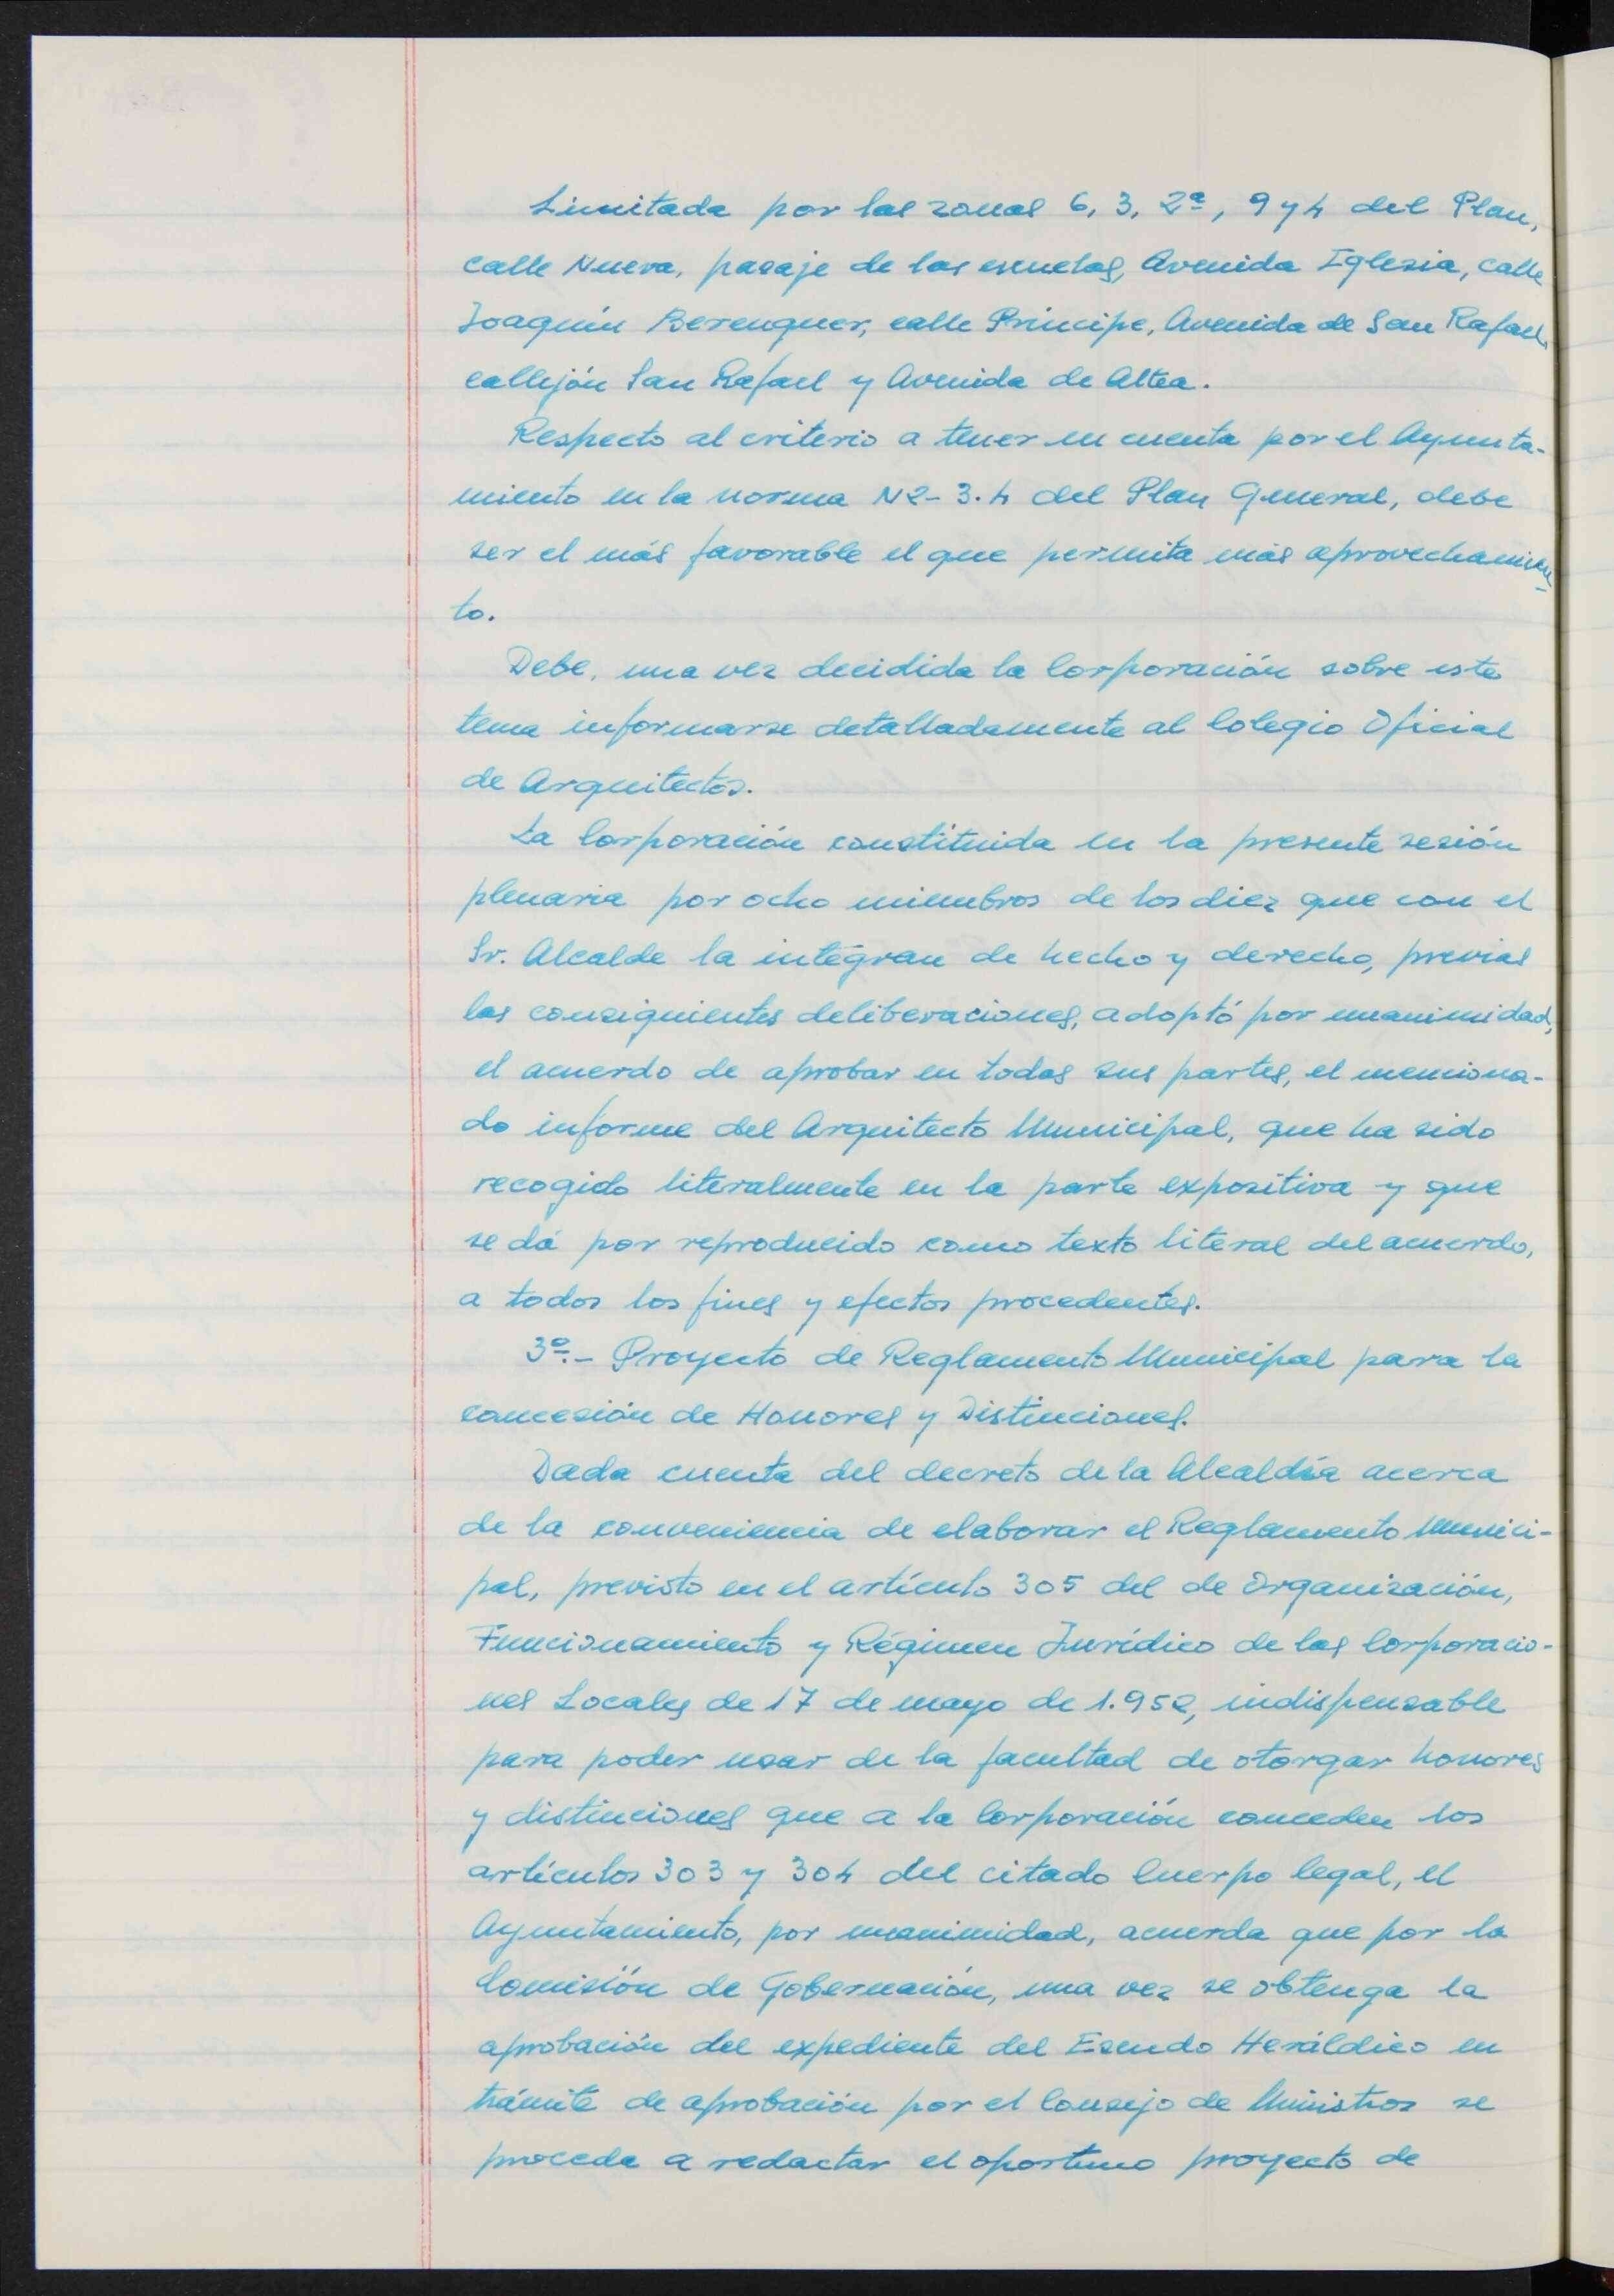 Limitada por las zonas 6, 3, 2ª, 9 y 4 del Plan,
calle Nueva, pasaje de las escuelas, Avenida Iglesia, calle
Joaquín Berenguer, calle Príncipe, Avenida de San Rafael,
callejón San Rafael y Avenida de Altea.
Respecto al criterio a tener en cuenta por el Ayunta-
miento en la norma N2-3.4 del Plan General, debe
ser el más favorable el que permita más aprovechamien-
to.
Debe, una vez decidida la Corporación sobre este
tema informarse detalladamente al Colegio Oficial
de Arquitectos.
La Corporación constituida en la presente sesión
plenaria por ocho miembros de los diez que con el
Sr. Alcalde la integran de hecho y derecho, previas
las consiguientes deliberaciones, adoptó por unanimidad,
el acuerdo de aprobar en todas sus partes, el menciona-
do informe del Arquitecto Municipal, que ha sido
recogido literalmente en la parte expositiva y que
se dá por reproducido como texto literal del acuerdo,
a todos los fines y efectos procedentes.
3º.- Proyecto de Reglamento Municipal para la
concesión de Honores y Distinciones.
Dada cuenta del decreto de la Alcaldía acerca
de la conveniencia de elaborar el Reglamento Munici-
pal, previsto en el artículo 305 del de Organización,
Funcionamiento y Régimen Jurídico de las Corporacio-
nes Locales de 17 de mayo de 1.952, indispensable
para poder usar de la facultad de otorgar honores
y distinciones que a la Corporación conceden los
artículos 303 y 304 del citado Cuerpo legal, el
Ayuntamiento, por unanimidad, acuerda que por la
Comisión de Gobernación, una vez se obtenga la
aprobación del expediente del Escudo Heráldico en
trámite de aprobación por el Consejo de Ministros se
proceda a redactar el oportuno proyecto de